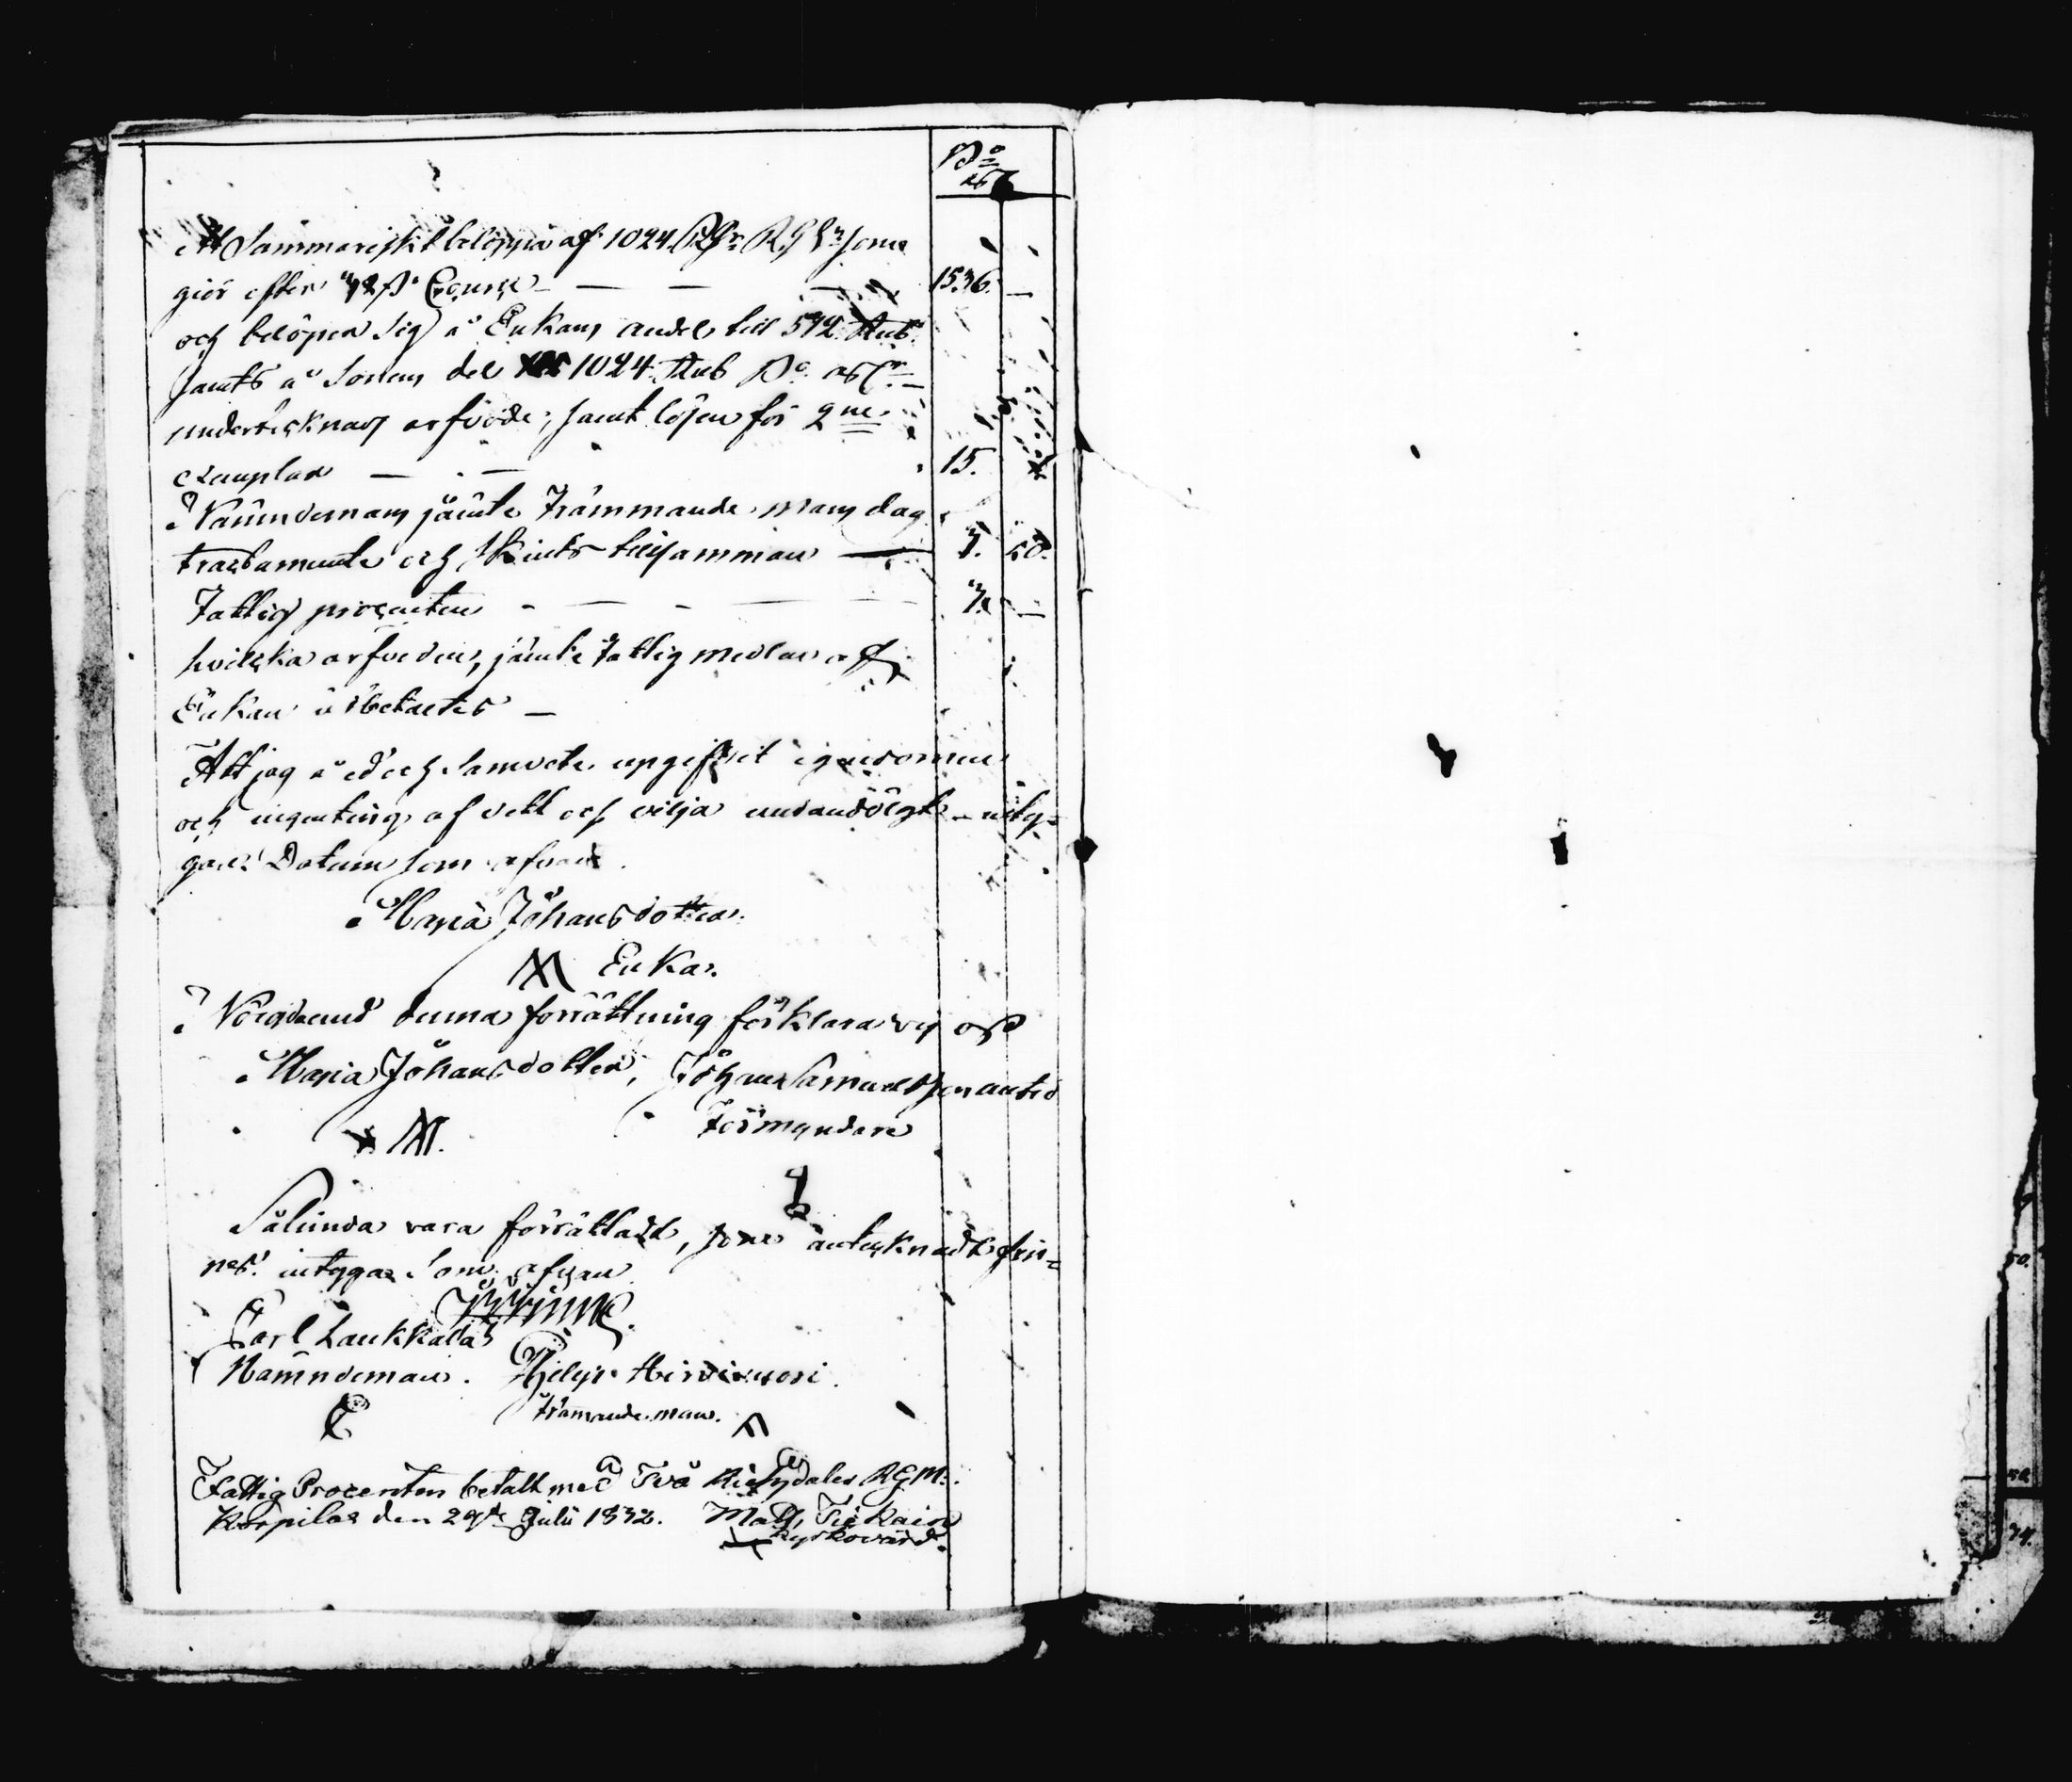 Bo
asb
Att Sammariskt belöpa af 1024 Rdr RGs som
giör efter 72 /3 Course — — — 1536. —
och belöper sig å Enkans andel till 512 Rub
samt å Sonens del 1024 Rub Bo asg
undertecknads arfvode, samt lösen för 2ne
exemplar — — 15.
Nämndemans jämte främmande mans dag
tractamente och Skiuts tillsamman — 7. 50.
Fattig procenten - — - — — 7. —
hvilcka arfvoden, jämte fattig medlen af
Enkan är betaltes —
Att jag å ed och Samvete uppgifvit egendomen
och ingenting af vett och vilja undandölgt - inty-
gar. Datum som ofvan.
Maria Johansdotter.
M Enka.
Nögda med denna förrättning förklara vij oss
Maria Johansdotter, Johan Samuelsson antid
M. Förmyndare
Sålunda vara förrättadt, som antecknadt fin-
nes. intygar som ofvan
Carl Laukkala
Nämndeman. Philip
främande man.
Fattig Procenten betalt med Två Riksdaler RGM:
Korpilax den 29de Julii 1832. Matts Tickain
Kyrkovärd.
50.
50.
74.